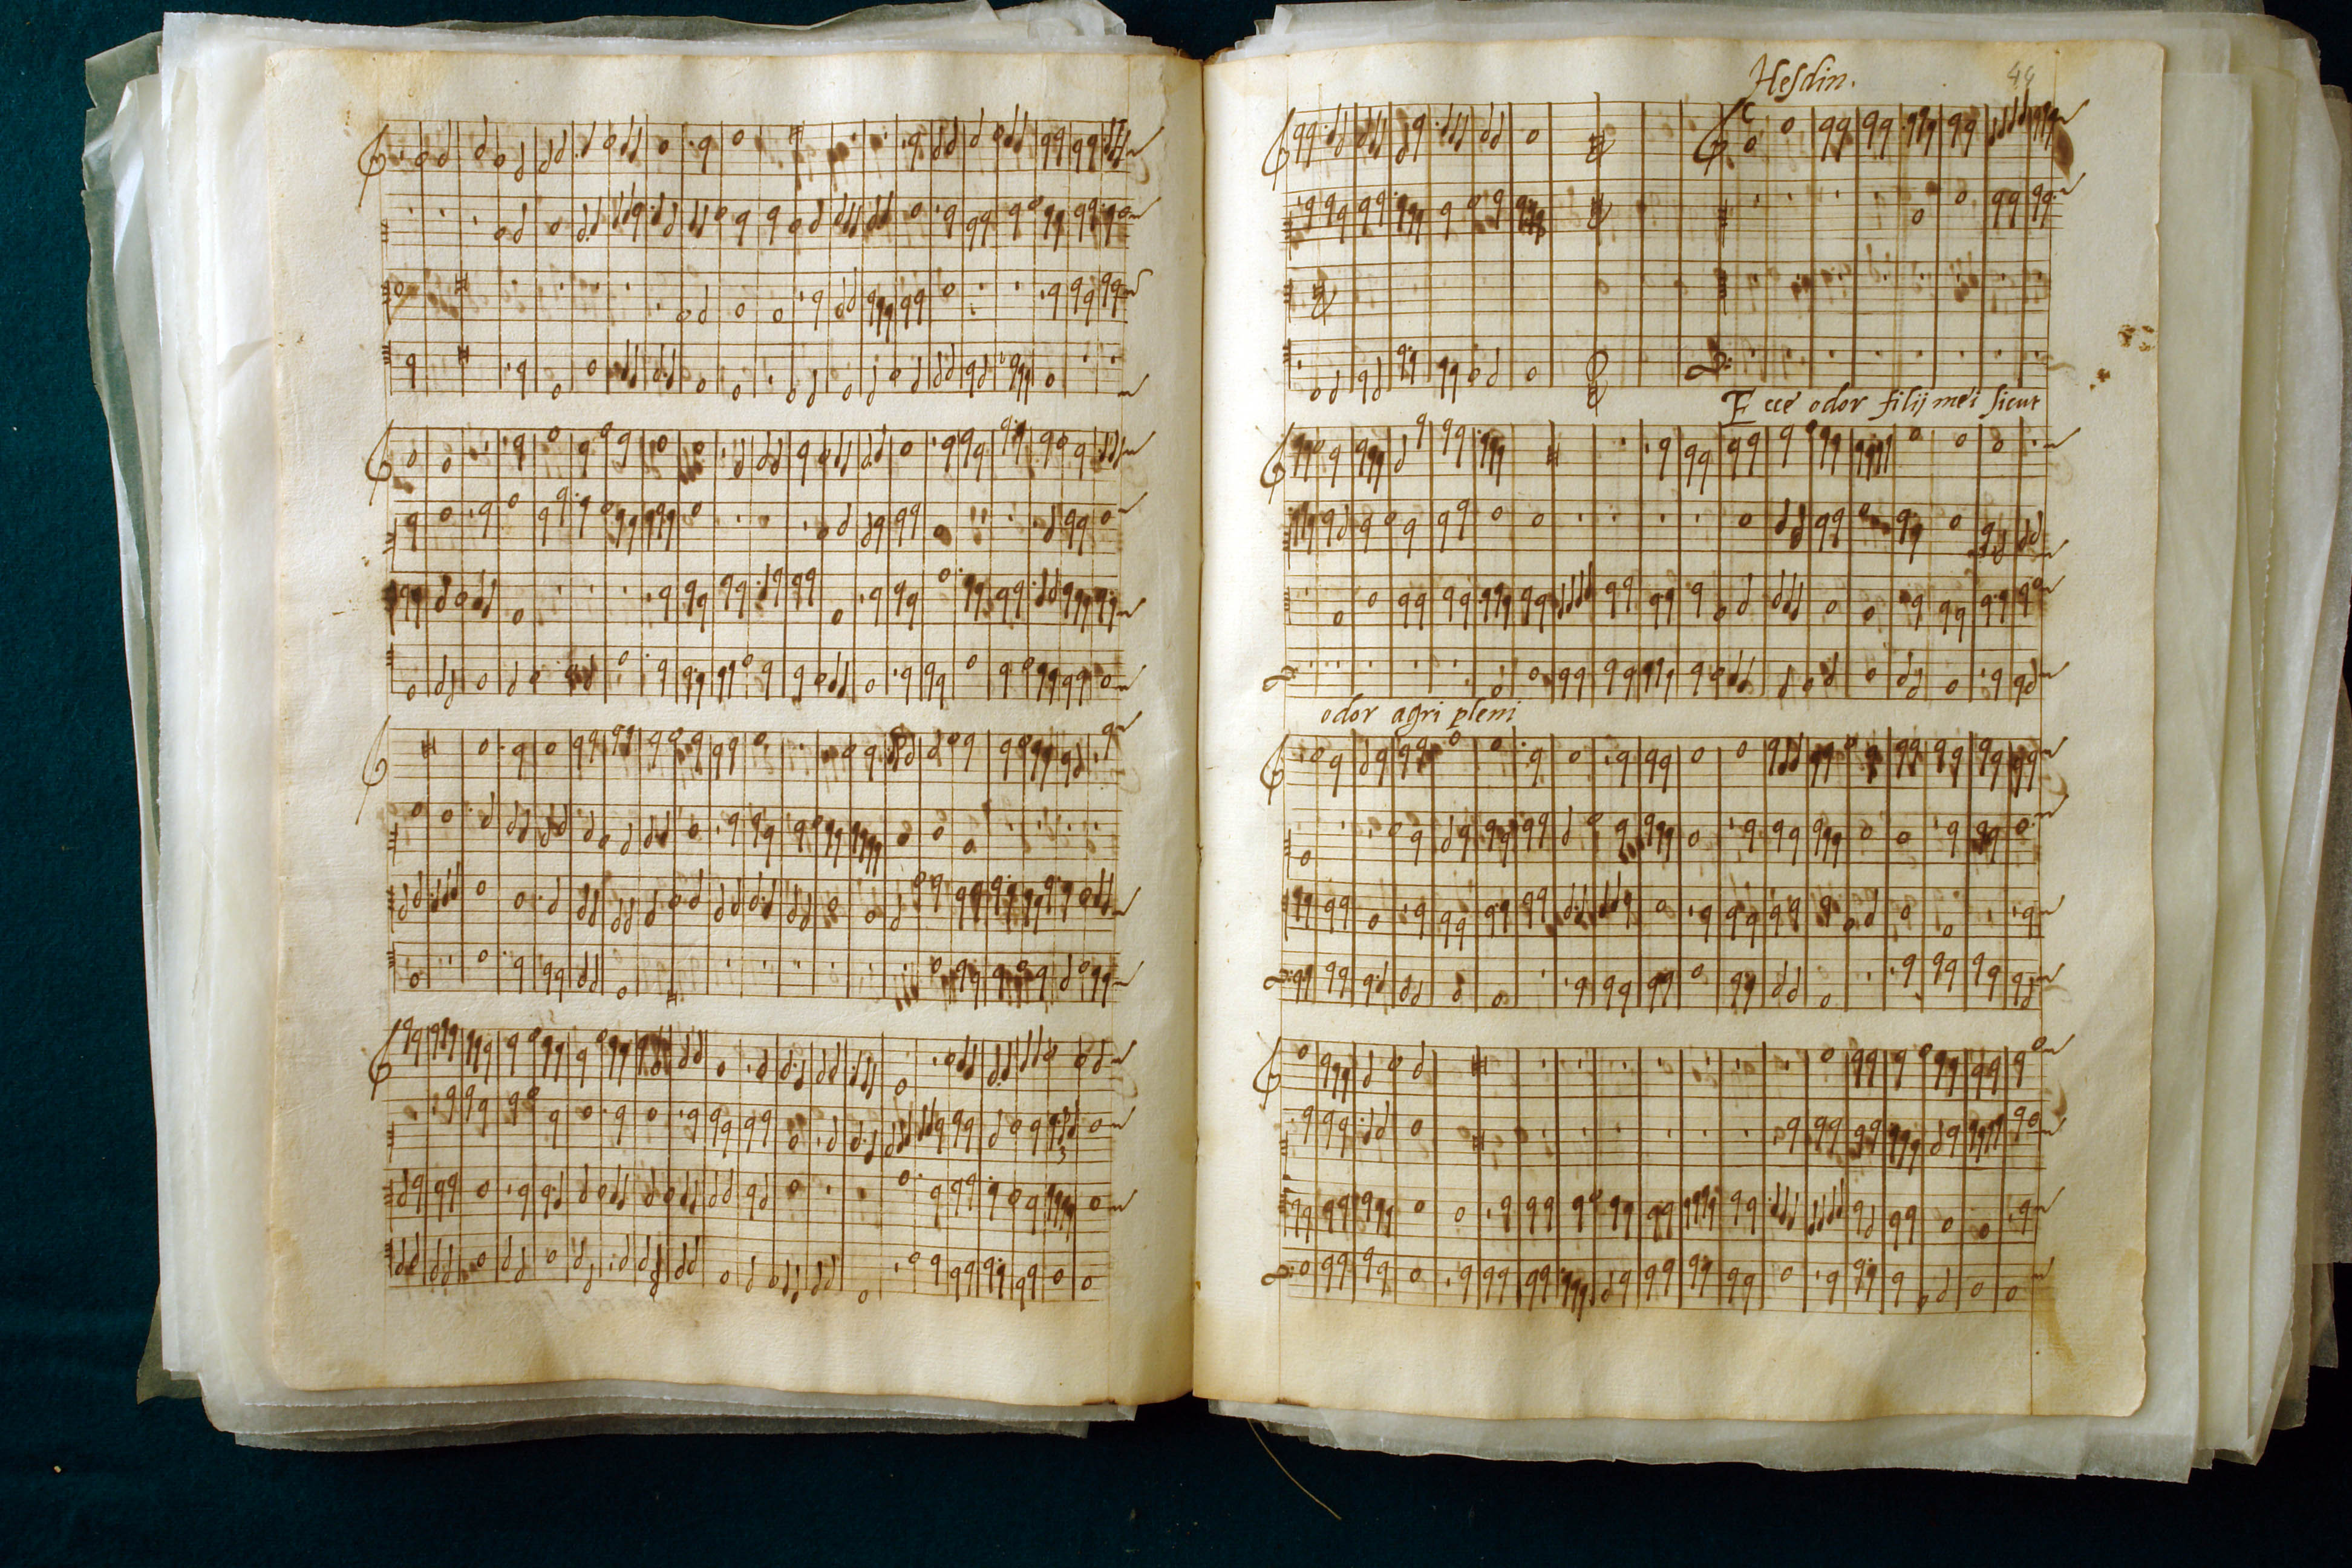 Hesdin.
Ecce odor filij mei sicut
odor agri pleni